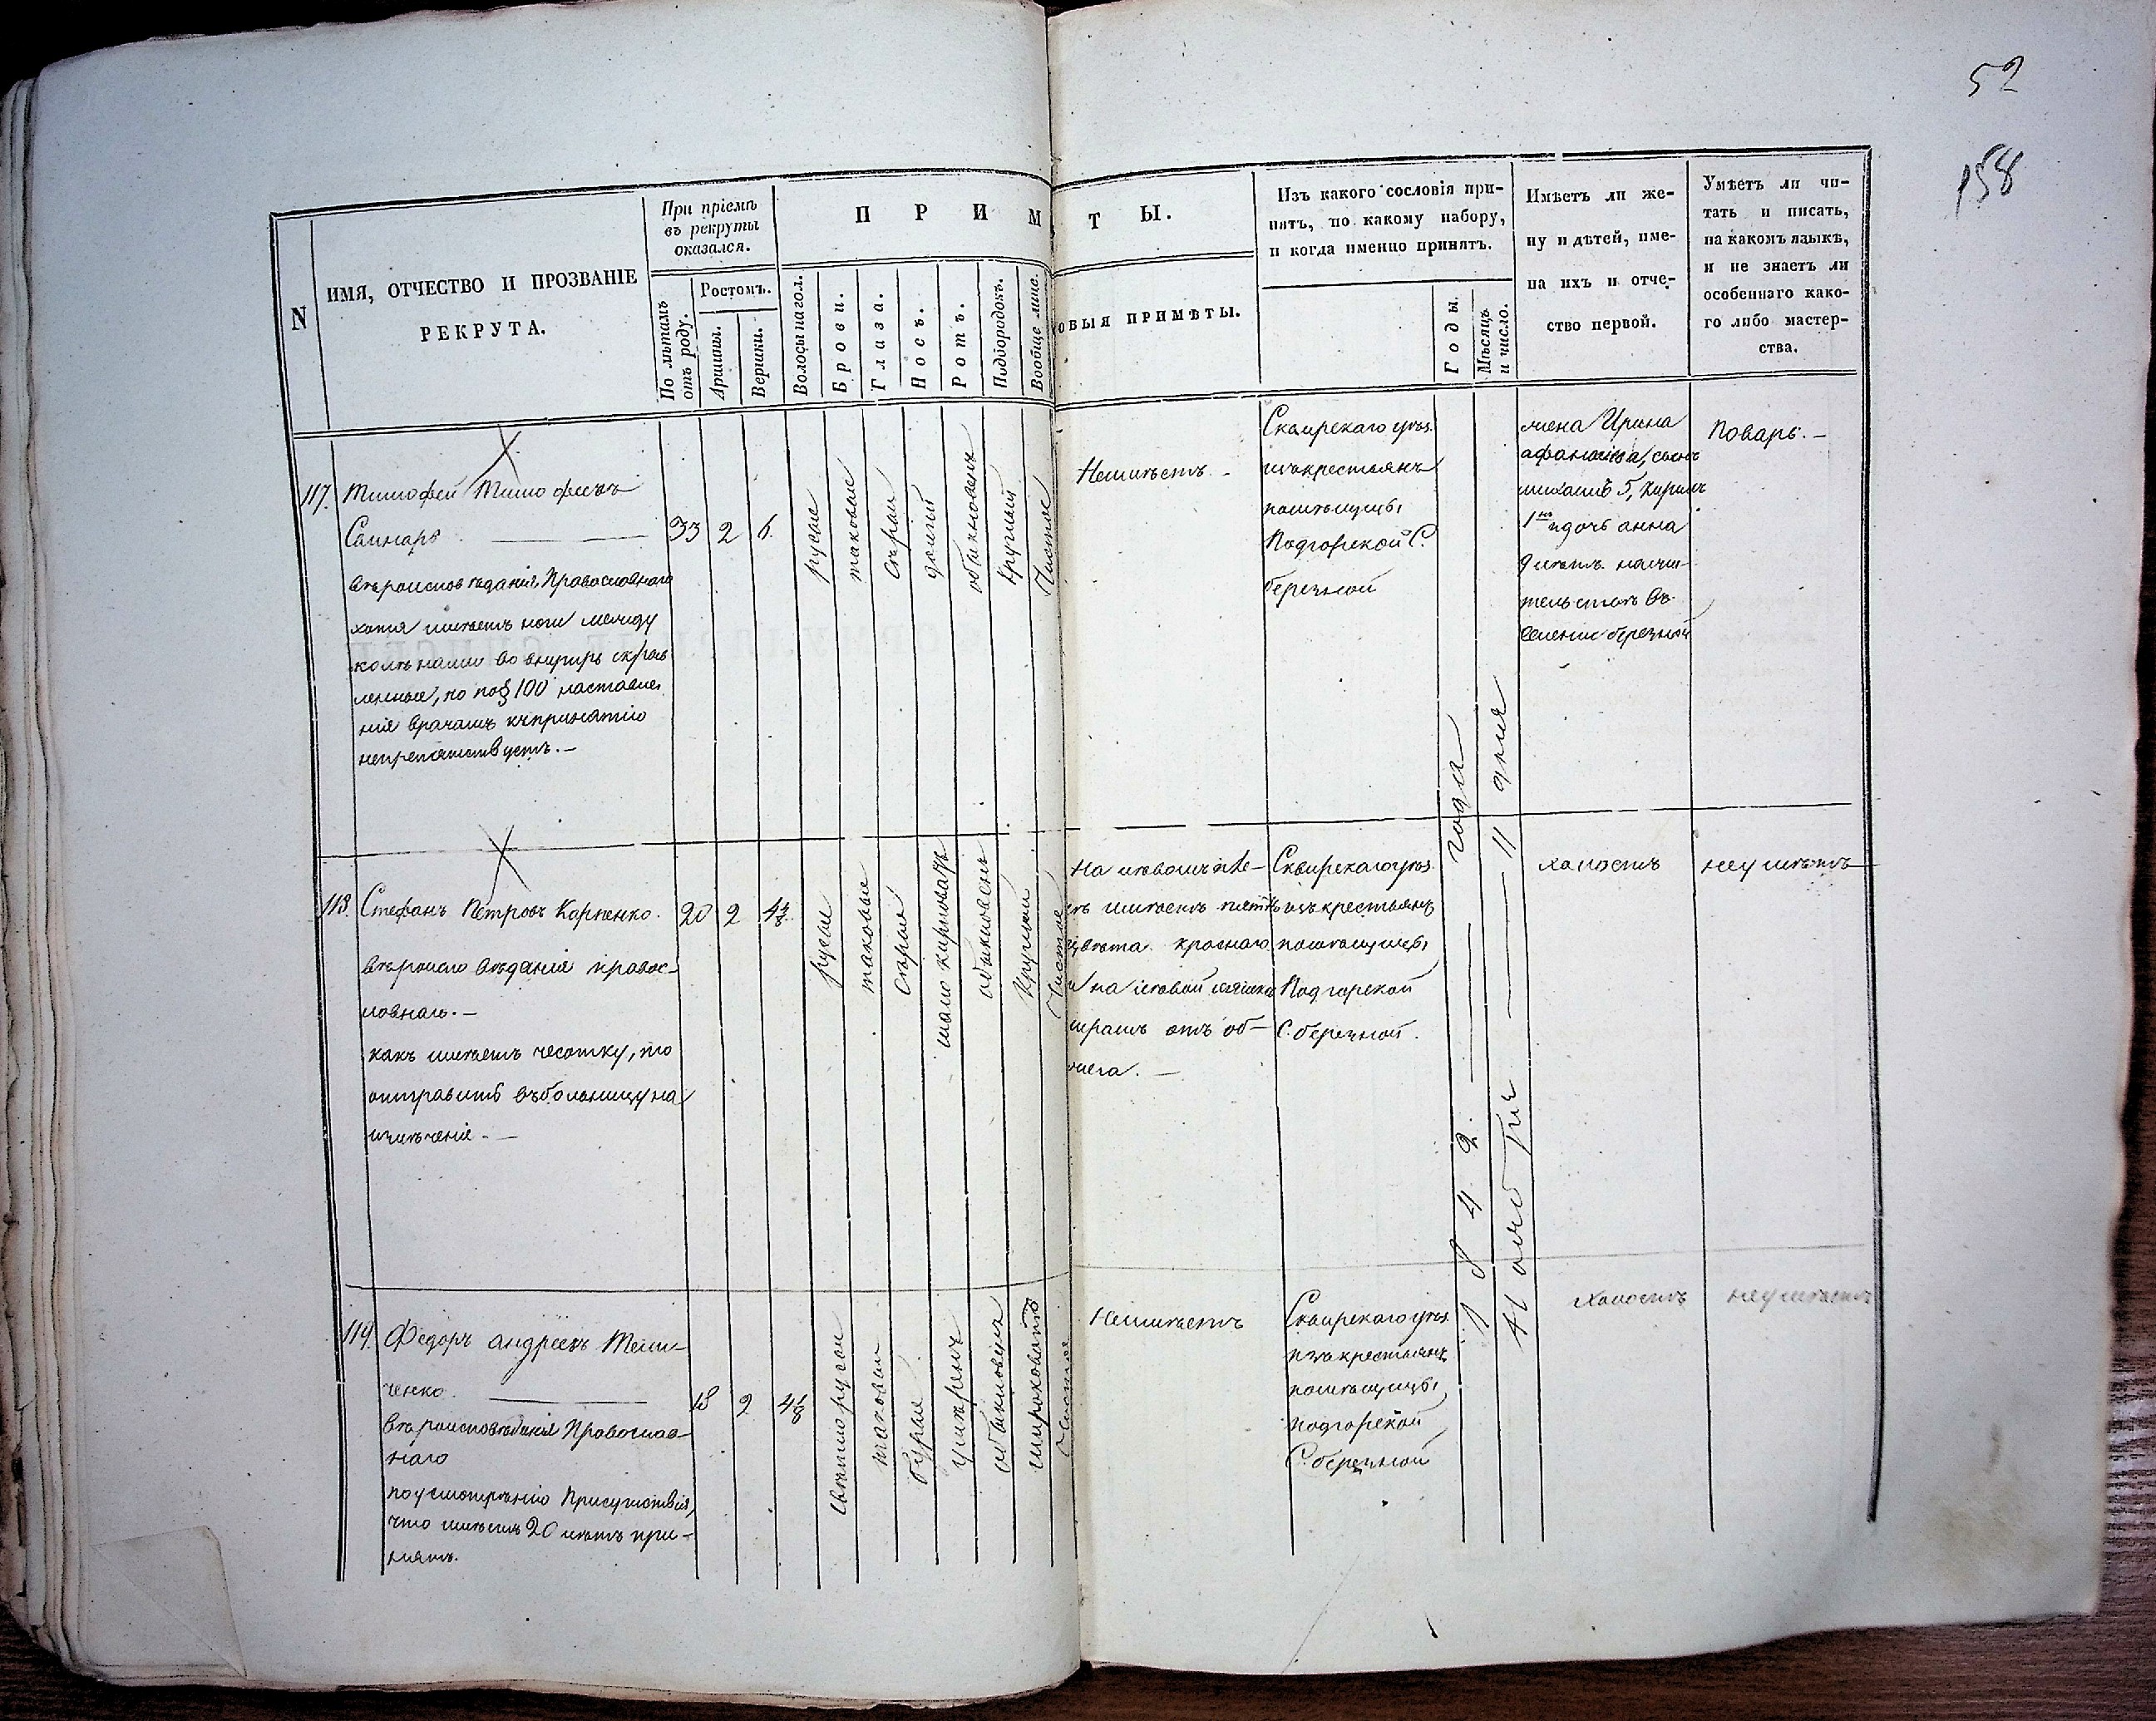 52
158
N
ИМЯ, ОТЧЕСТВО И ПРОЗВАНІЕ
РЕКРУТА.
При пріемѣ
въ рекруты
оказался.
По лѣтамъ
отъ роду.
Ростомъ.
Аршины.
Вершки.
П Р И М
Волосы на гол.
Брови.
Глаза.
Носъ.
Ротъ.
Подбородокъ.
Вообще лице.
Т Ы.
ОВЫЯ ПРИМѢТЫ.
Изъ какого сословія при-
нятъ, по какому набору,
и когда именно принятъ.
Годы.
Мѣсяцъ
и число.
Имѣетъ ли же-
ну и дѣтей, име-
на ихъ и отче-
ство первой.
Умѣетъ ли чи-
тать и писать,
на какомъ языкѣ,
и не знаетъ ли
особеннаго како-
го либо мастер-
ства.
117. Тимофей Тимофеевъ
33 2 6.
вѣроисповѣданія Православнаго
хотя имѣетъ ноги между
колѣнами во внутрь скрив
ленные, но по § 100 наставле
нія врачамъ къ принятію
непрепятствуетъ. —
русые
таковые
Сѣрыи
долгій
обыкновенъ
круглый
Чистое
Неимѣетъ —
Сквирскаго уѣз.
изъ крестьянъ
помѣщицы
Подгорской С.
березной
жена Ирина
сынъ
5,
1 дочь анна
9 лѣтъ
тельствъ въ
селеніи березной
Поваръ. —
118. Стефанъ Петровъ Карпенко.
20 2 4 4/8
вѣроисповѣданія правос-
лавнаго. —
какъ имѣетъ чесотку, то
отправить въ больницу на
излѣченіе. —
русые
таковые
Сѣрые
мало кирповатъ
обыкновенъ
Круглый
Чистое
На лѣвомъ пле-
чѣ имѣетъ пятно
цвѣта краснаго
и на лѣвой ляшке
шрамъ отъ об-
жега. —
Сквирскаго уѣз.
изъ крестьянъ
помѣщицы
Подгорской
С. березной.
1842 года
11 дня
холостъ
неумѣетъ
119. Федоръ андреевъ Тем-
ченко.
18 2 4 1/8
вѣроисповѣданія Православ-
наго
по усмотренію Присутствія,
что имѣетъ 20 лѣтъ при-
нятъ.
свѣтлорусыи
таковыи
бурые
умѣренъ
обыкновенъ
широковатъ
Чистое
Неимѣетъ
Сквирскаго уѣз.
изъ крестьянъ
помѣщицы
подгорской
С. березной
холостъ
неумѣетъ